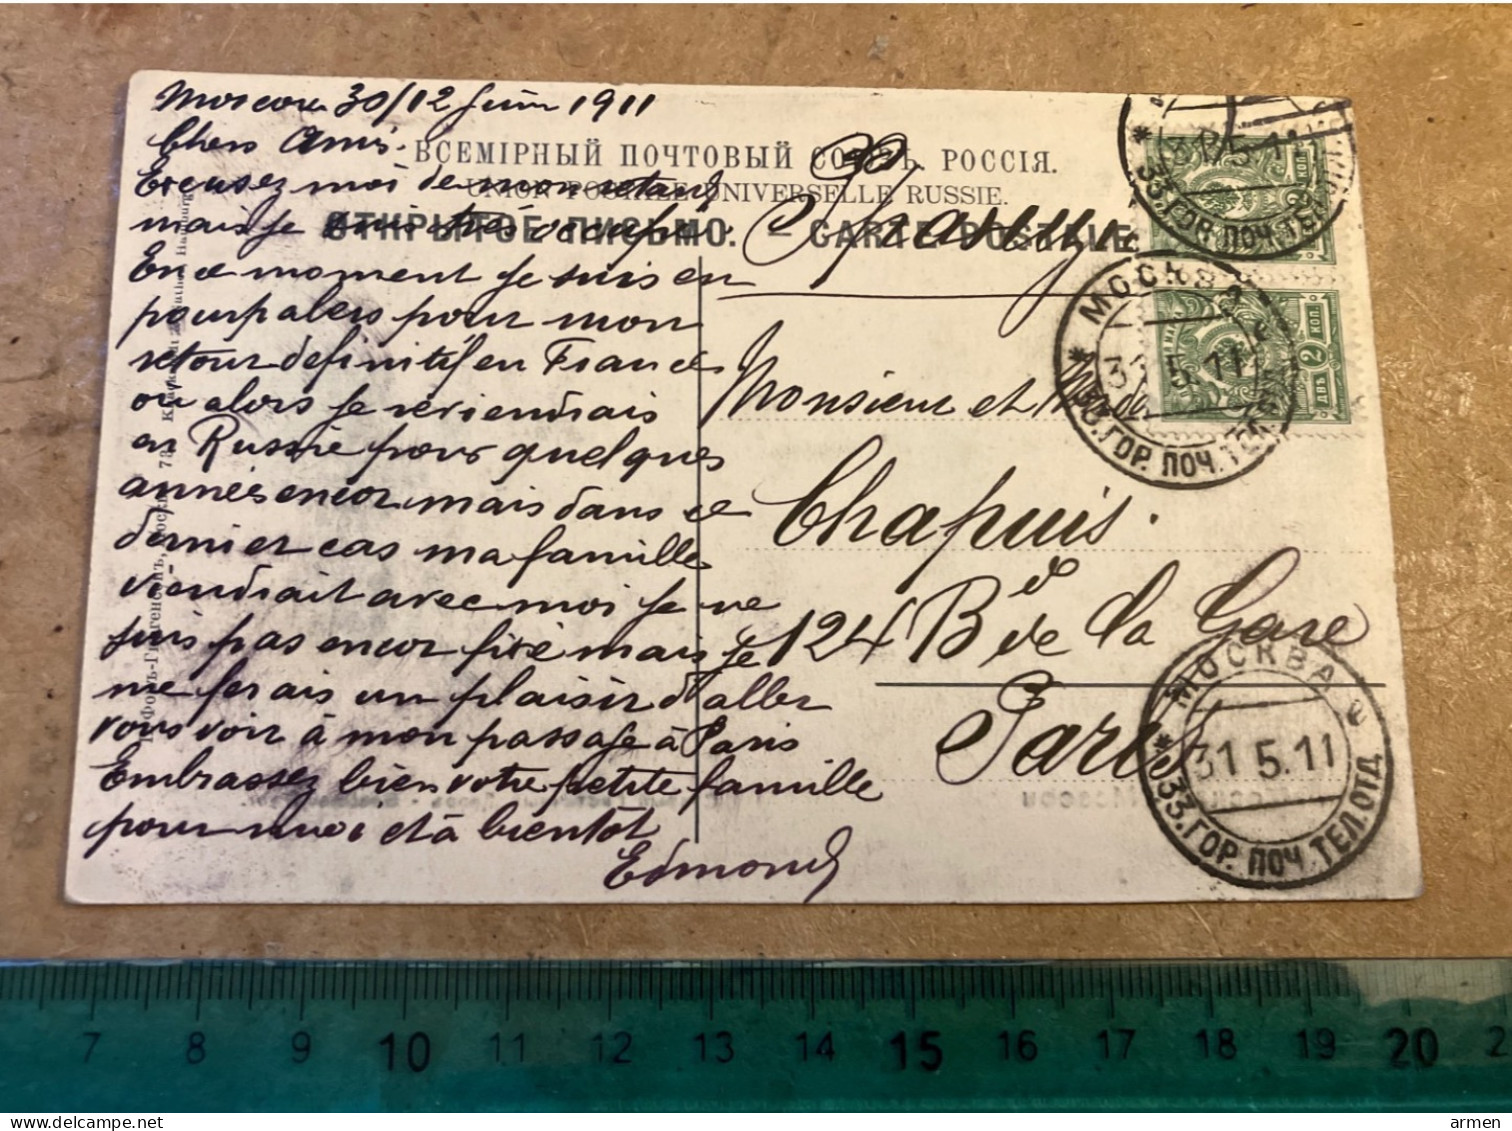 Moscou 30/12 Juin 1911
Chers Amis.
ВСЕМІРНЫЙ ПОЧТОВЫЙ СОЮЗЪ. РОССІЯ.
UNION POSTALE UNIVERSELLE RUSSIE.
ОТКРЫТОЕ ПИСЬМО. — CARTE POSTALE
Excusez moi de mon retard
mais je suis très occupé.
En ce moment je suis en
pourpalers pour mon
retour definitif en France
ou alors je reviendrais
en Russie pour quelques
annès encor mais dans ce
dernier cas ma famille
viendrait avec moi je ne
suis pas encor fixé mais je
me ferais un plaisir d'aller
vous voir à mon passage à Paris
Embrassez bien votre petite famille
pour moi et à bientôt
Edmond
Monsieur et
Chapuis.
124 Bd de la Gare
Paris
МОСКВА
31.5.11
33.ГОР. ПОЧ. ТЕЛ.ОТД.
МОСКВА
31 5.11
33.ГОР. ПОЧ. ТЕЛ.ОТД
5.11
33.ГОР. ПОЧ. ТЕЛ.ОТД.
2 КОП.
2 КОП.
ДВѢ
7 8 9 10 11 12 13 14 15 16 17 18 19 20 2
armen